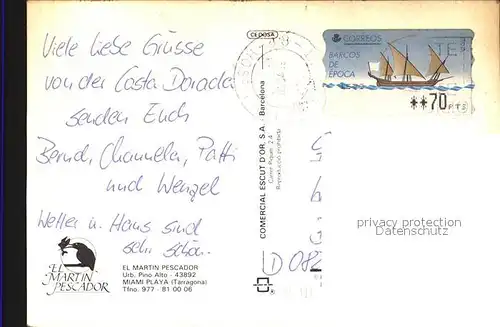 Viele liebe Grüsse
von der Costa Dorada
senden Euch
Bernd, Channelen, Patti
und Wenzel
Wetter u. Haus sind
sehr schön.
EL
MARTIN
PESCADOR
EL MARTIN PESCADOR
Urb. Pino Alto - 43892
MIAMI PLAYA (Tarragona)
Tfno. 977 - 81 00 06
CEDOSA
COMERCIAL ESCUT D'OR, S.A. - Barcelona
Reproducción prohibida
CORREOS
BARCOS
DE
EPOCA
**70 PTS
privacy protection
delcampe.net
D 082